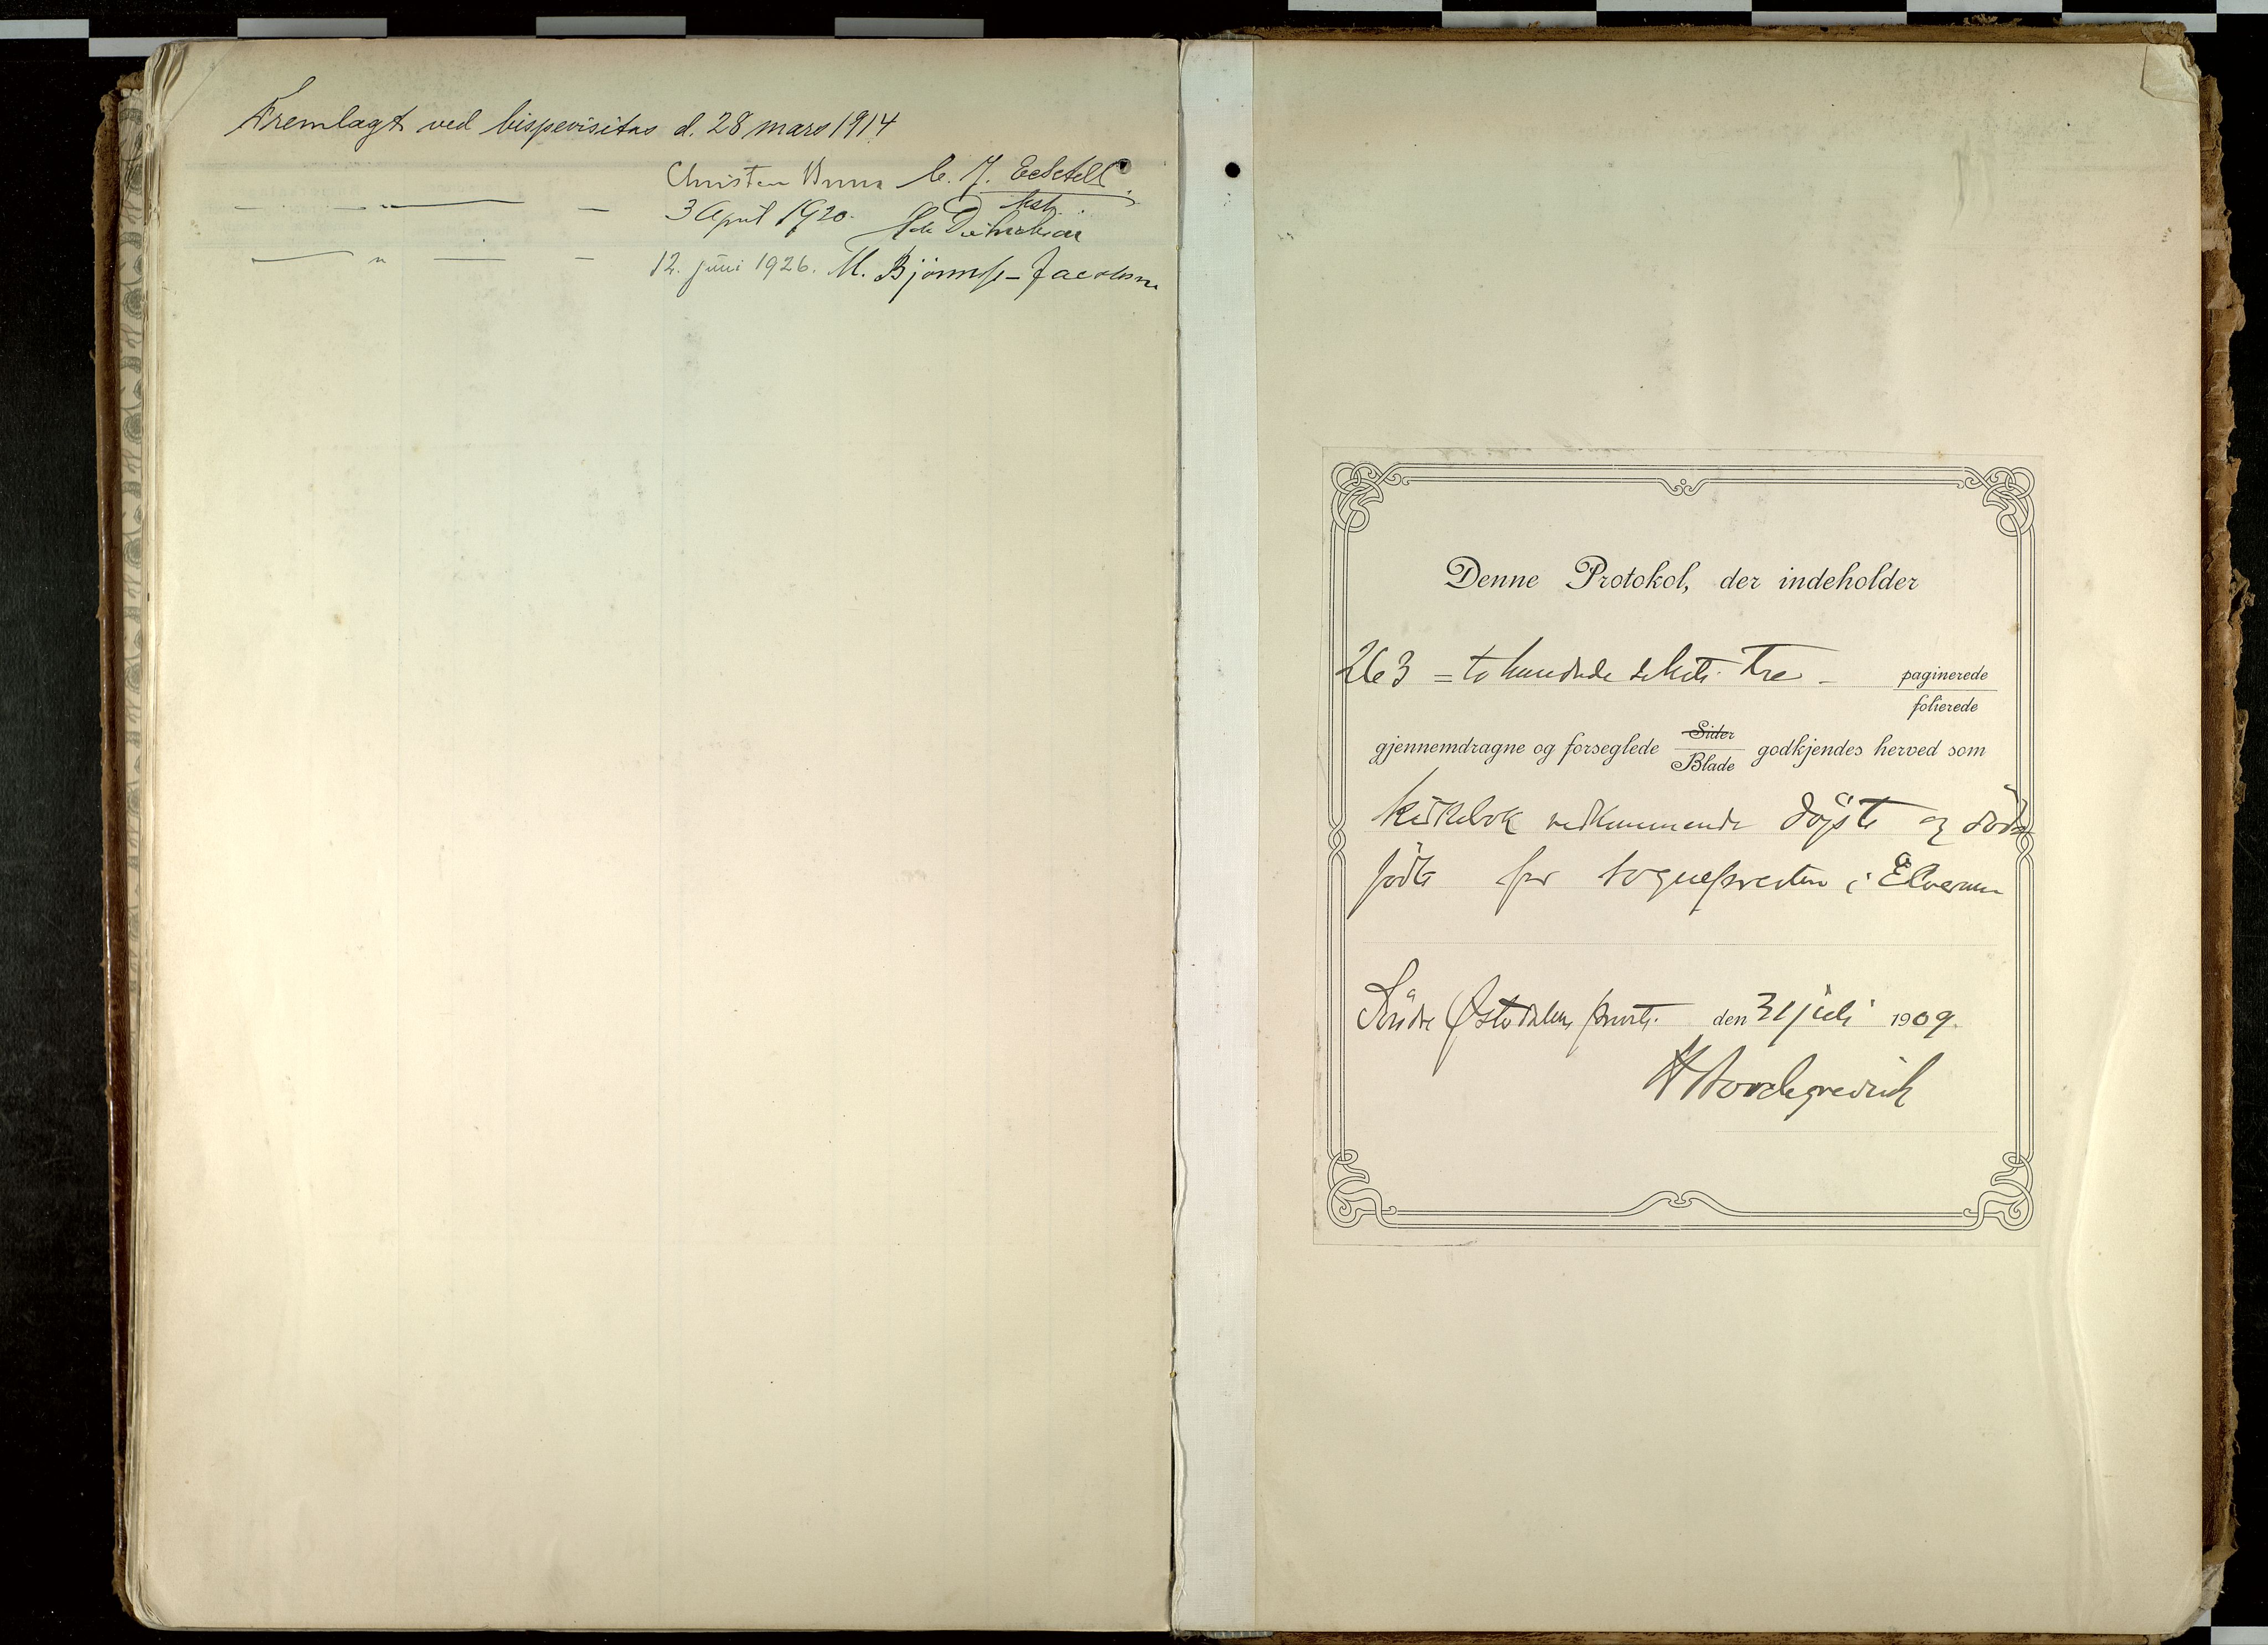 Fremlagt ved bispevisitas d. 28 mars 1914
Christen Brun C. J.
3 April 1920.
— " — — 12. juni 1926. M. Bjønnes-Jacobsen
Denne Protokol, der indeholder
263 = to hundrede seksti tre – paginerede
folierede
gjennemdragne og forseglede Sider godkjendes herved som
Blade
kirkebok vedkommende døpte og død
fødte for sognepresten i Elverum
Søndre Østerdalens prosti den 31 juli 1909.